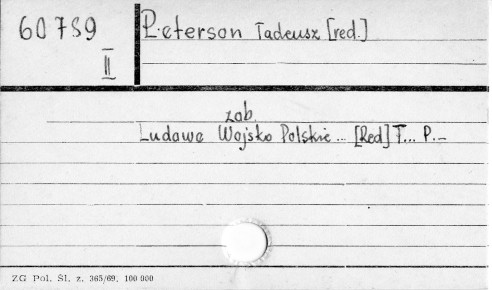 60789 Peterson Tadeusz [red.]
II
zob.
Ludowe Wojsko Polskie... [Red] T... P.-
ZG Pol. Śl. z. 365/69, 100 000